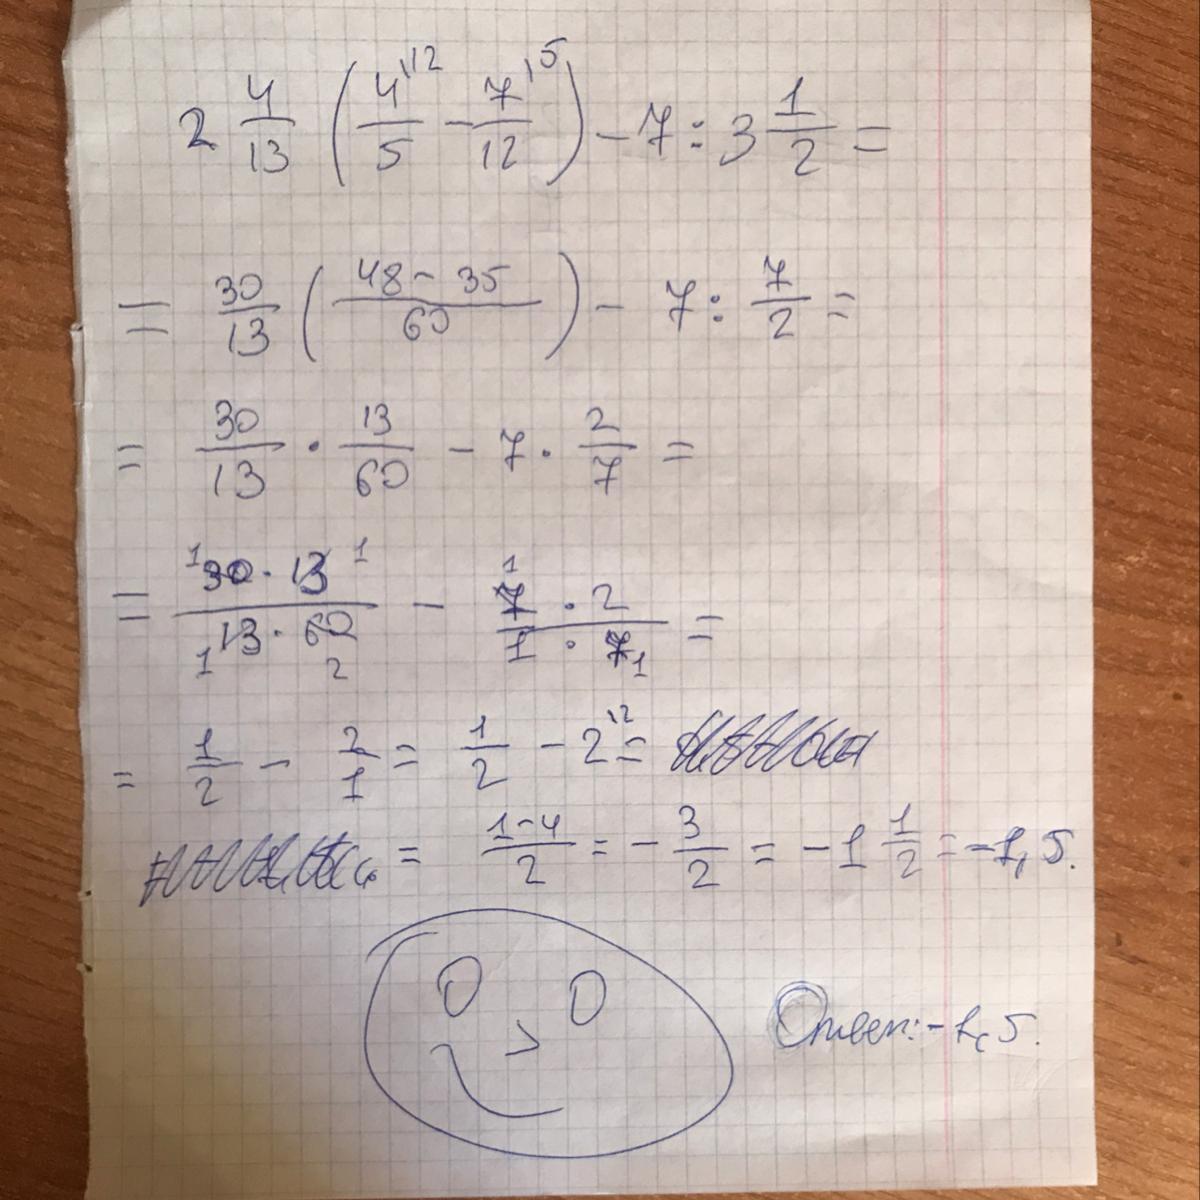 2 4/13 (4\12/5 - 7\5/12) - 7 : 3 1/2 =
= 30/13 (48 - 35/60) - 7 : 7/2 =
= 30/13 · 13/60 - 7 · 2/7 =
= 1 30 · 13 1/1 13 · 60 2 - 1 7 · 2/1 · 7 1 =
= 1/2 - 2/1 = 1/2 - 2\2 =
= 1-4/2 = - 3/2 = -1 1/2 = -1,5.
Ответ: -1,5.